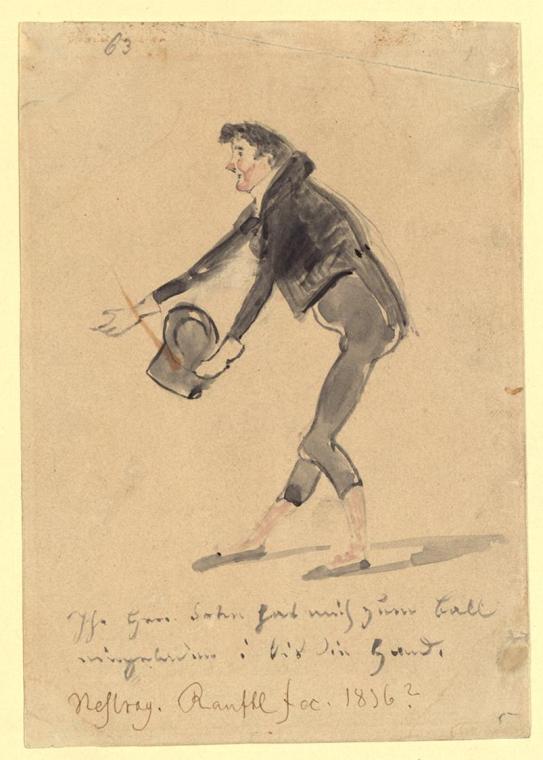 63
Ihr Herr Sohn hat mich zum Ball
eingeladen i bis die Hand.
Nestroy. Ranftl fec. 1836?